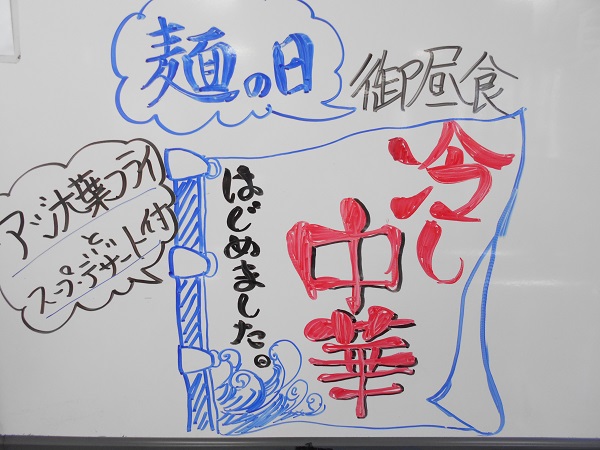 麺の日
御昼食
冷し
中華
はじめました。
アジ大葉フライ
と
スープ・デザート付